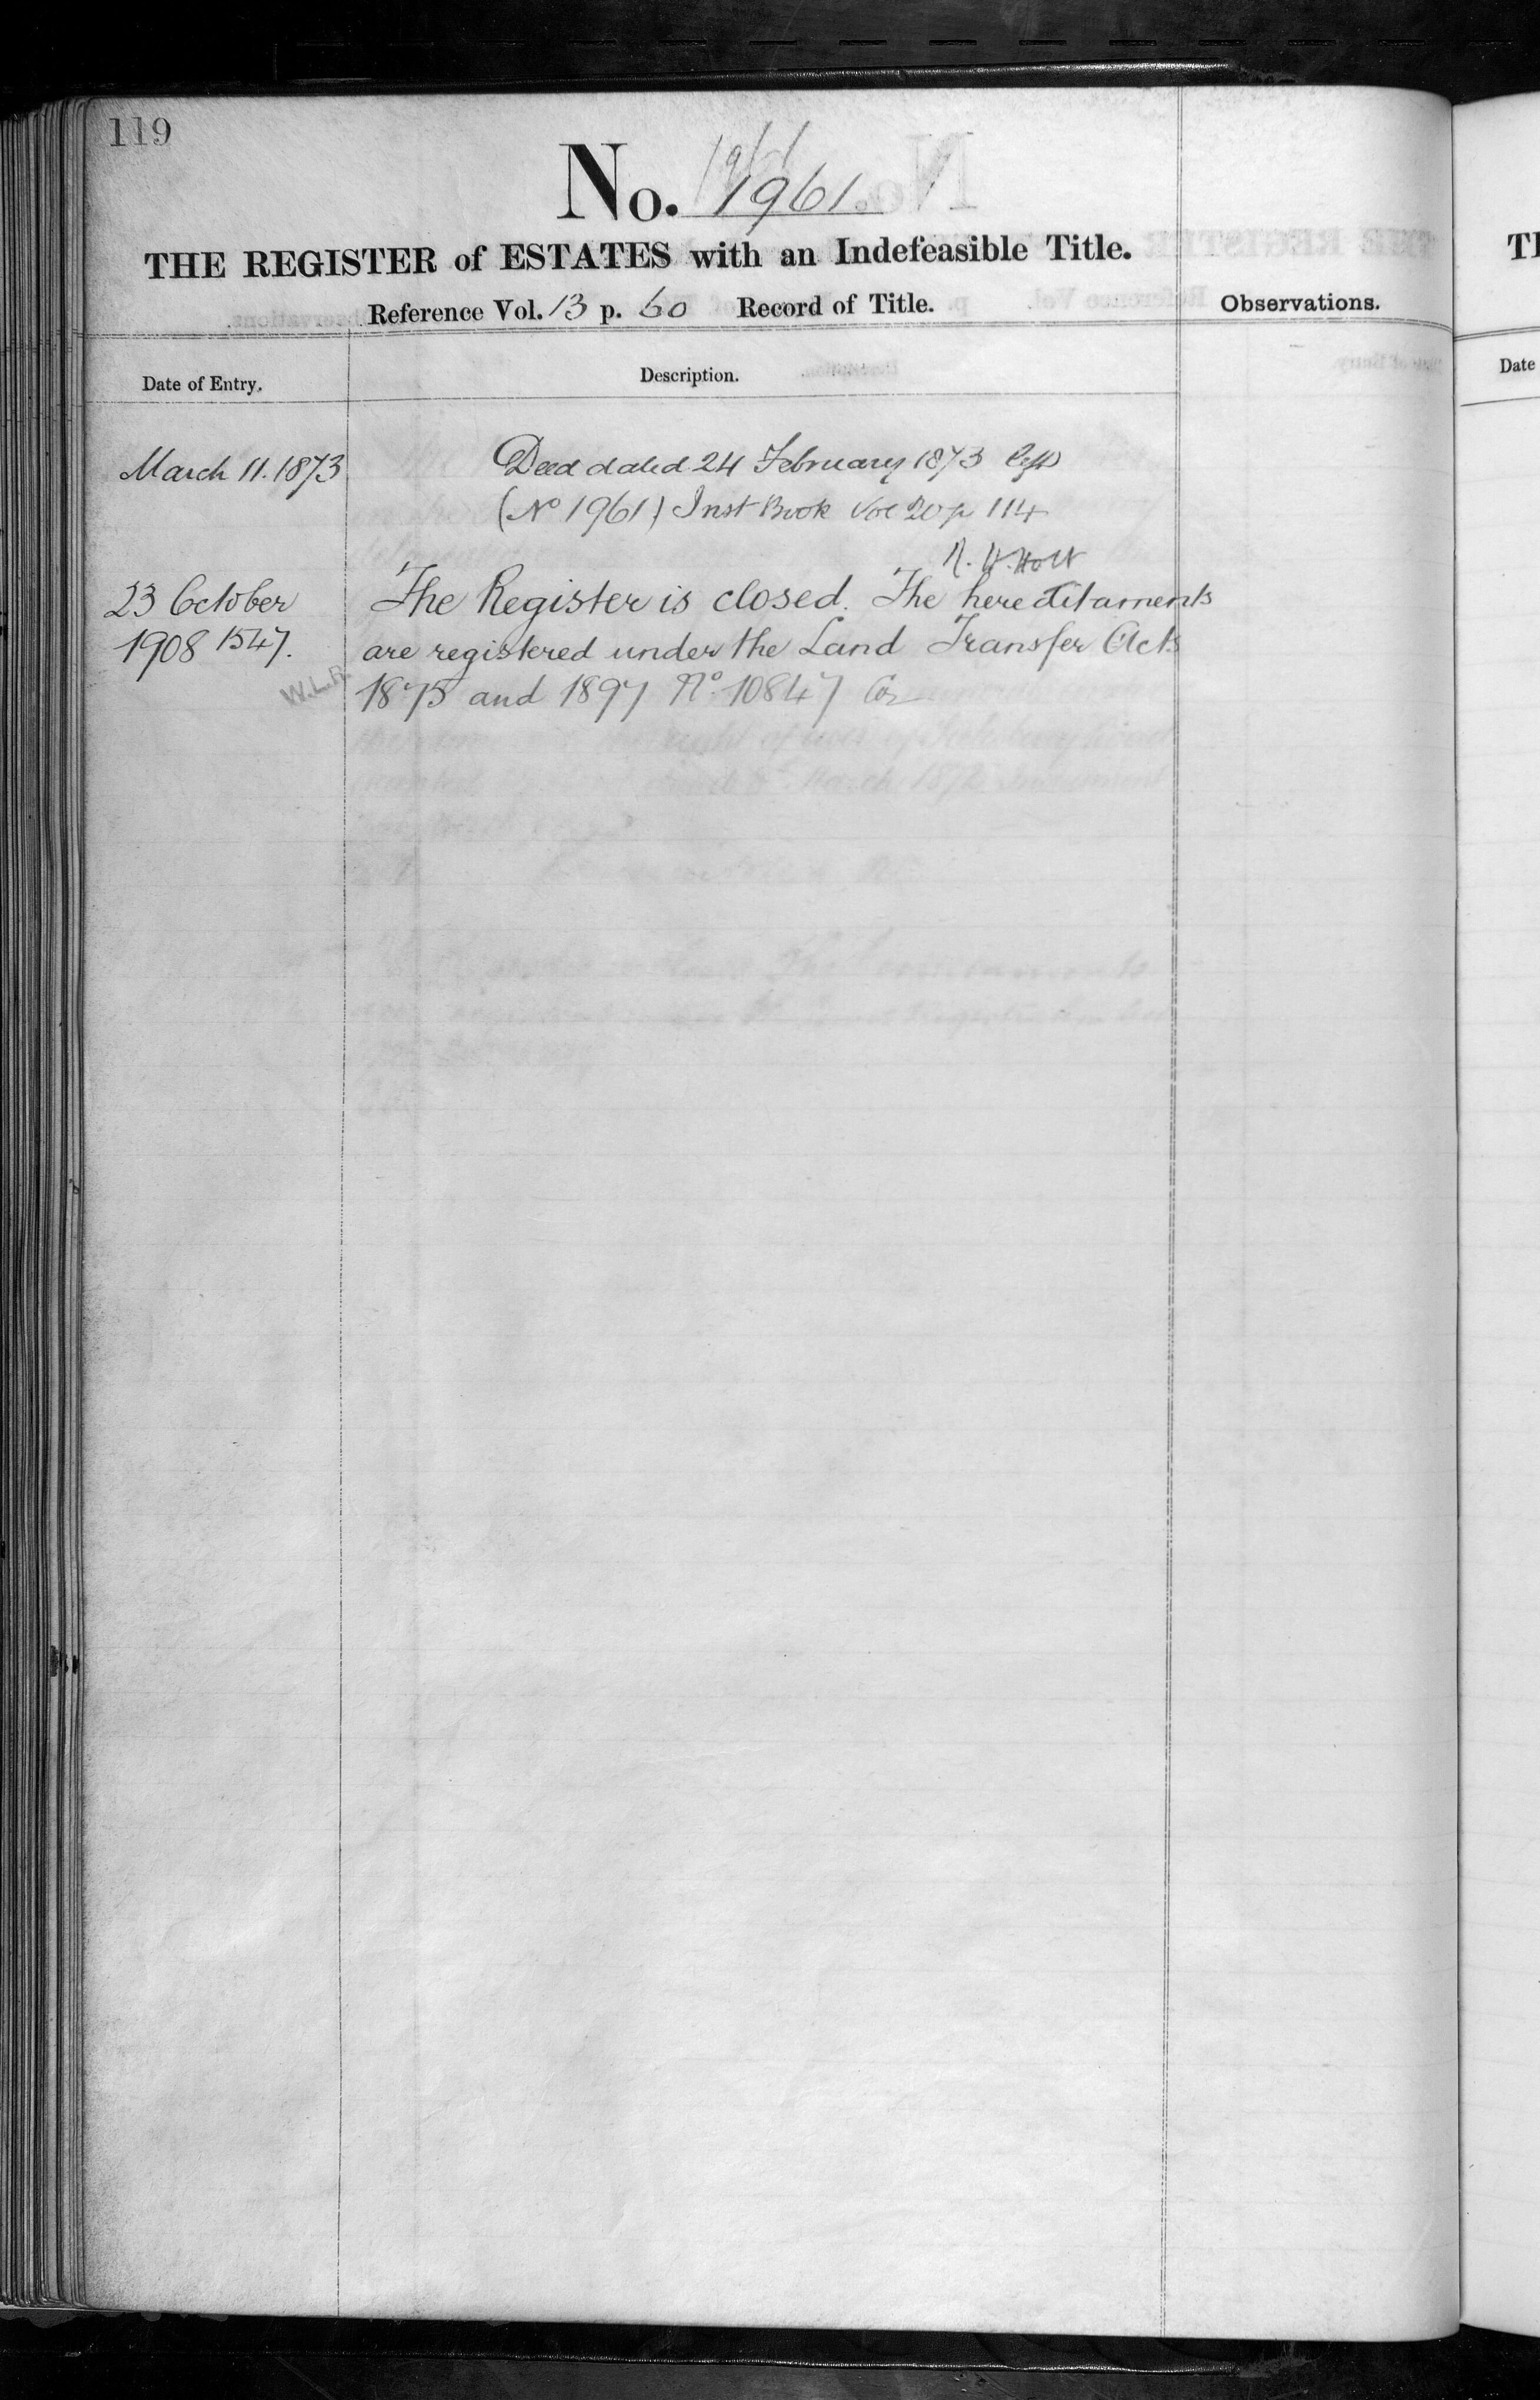 119
No. 1961.
1961
THE REGISTER of ESTATES with an Indefeasible Title.
Reference Vol. 13 p. 60 Record of Title.
Observations.
Date of Entry.
Description.
March 11. 1873
Deed dated 24 February 1873
(No 1961) Inst Book Vol 20 p 114
R. H. Holt
23 October
1908 1547.
W.L.R.
The Register is closed. The hereditaments
are registered under the Land Transfer Acts
1875 and 1897 No. 10847
Date